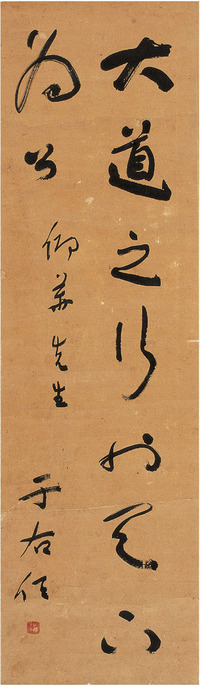 大道之行也天下
為公
先生
于右任